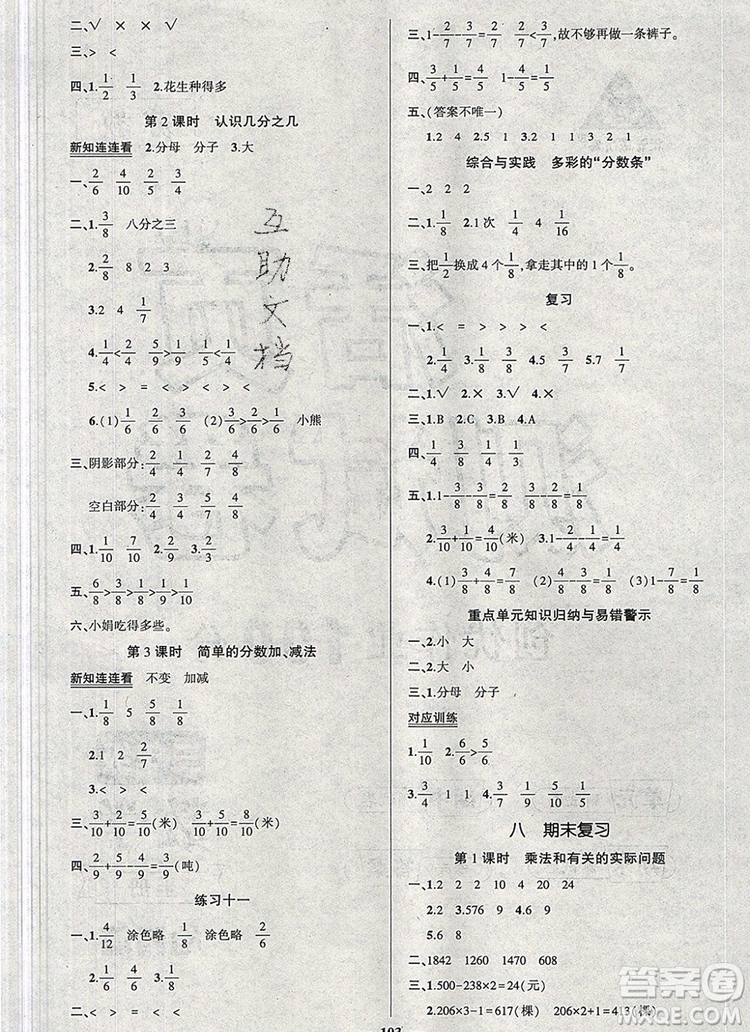 二、√ × √ ×
三、> < >
四、1. 1/2 1/3 2.花生种得多
第2课时 认识几分之几
新知连连看 2.分母 分子 3.大
一、2/6 4/10 2/5 4/8
二、1. 3/8 八分之三
2. 2/8 8 2 3
3.2 4 1/7
4. 1/4<2/4 5/9>2/9 1/5>1/6
5.< > = < <
6.(1) 1/6 2/6 3/6 (2) 3/6>2/6>1/6 小熊
三、阴影部分: 2/4 2/4 4/9 7/8
空白部分: 2/4 2/4 5/9 1/8
四、1. 1/10 7/10 2. 2/9 3. 1/8
五、6/8>5/8>4/8>3/8>2/8>1/8
六、小娟吃得多些。
第3课时 简单的分数加、减法
新知连连看 不变 加减
一、2/4 3/6 7/8 1/9
2.1 2 2/7
3.< > < =
三、3/10+2/10=5/10(米) 3/10+5/10=8/10(米)
四、2/10+4/10=6/10(吨)
练习十一
一、4/12 涂色略 1/8 涂色略
二、1. 4/8 4/8 2. 4/9
三、1-2/7-3/7=2/7 2/7<3/7,故不够再做一条裤子。
四、3/5+1/5=4/5 1-4/5=1/5
五、(答案不唯一)
1.2 4 2.5 1 3.2 1 3 2 1
综合与实践 多彩的“分数条”
一、2 2 2
二、1.1/2 1/8 2.1次 1/4 1/16
三、把1/2换成4个1/8,拿走其中的1个1/8。
复习
一、1.< = > > > >
2. 1/4 4/8 3. 1/2 4. 3/5 4/5 5.7 1/7
二、1.√ 2.× 3.√ 4.×
三、1.B 2.C 3.B 4.A
四、1/4 3/8 3/4 1/3
五、1. 1-3/8-2/8=3/8 3/8-2/8=1/8
2. 3/10+1/10=4/10(米) 3. 1-4/9=5/9
4.(1) 1/8+2/8=3/8 (2) 4/8-1/8=3/8 (3) 1-4/8=4/8
重点单元知识归纳与易错警示
一、1.小 大
二、2.大 小
三、1.分母 分子
对应训练
1. 1/10 2. 6/6>5/6
3. 3/4 1 1 4. 3/5 1/9 3/8
八 期末复习
第1课时 乘法和有关的实际问题
一、1.2 2 2 4
2.2 3.576 9 4.9
5.6 8
二、1842 1260 1470 608
三、1.500-238×2=24(元)
2.206×3-1=617(棵) 206×2+1=413(棵)
103
互助文档
答案圈
MXQE.COM